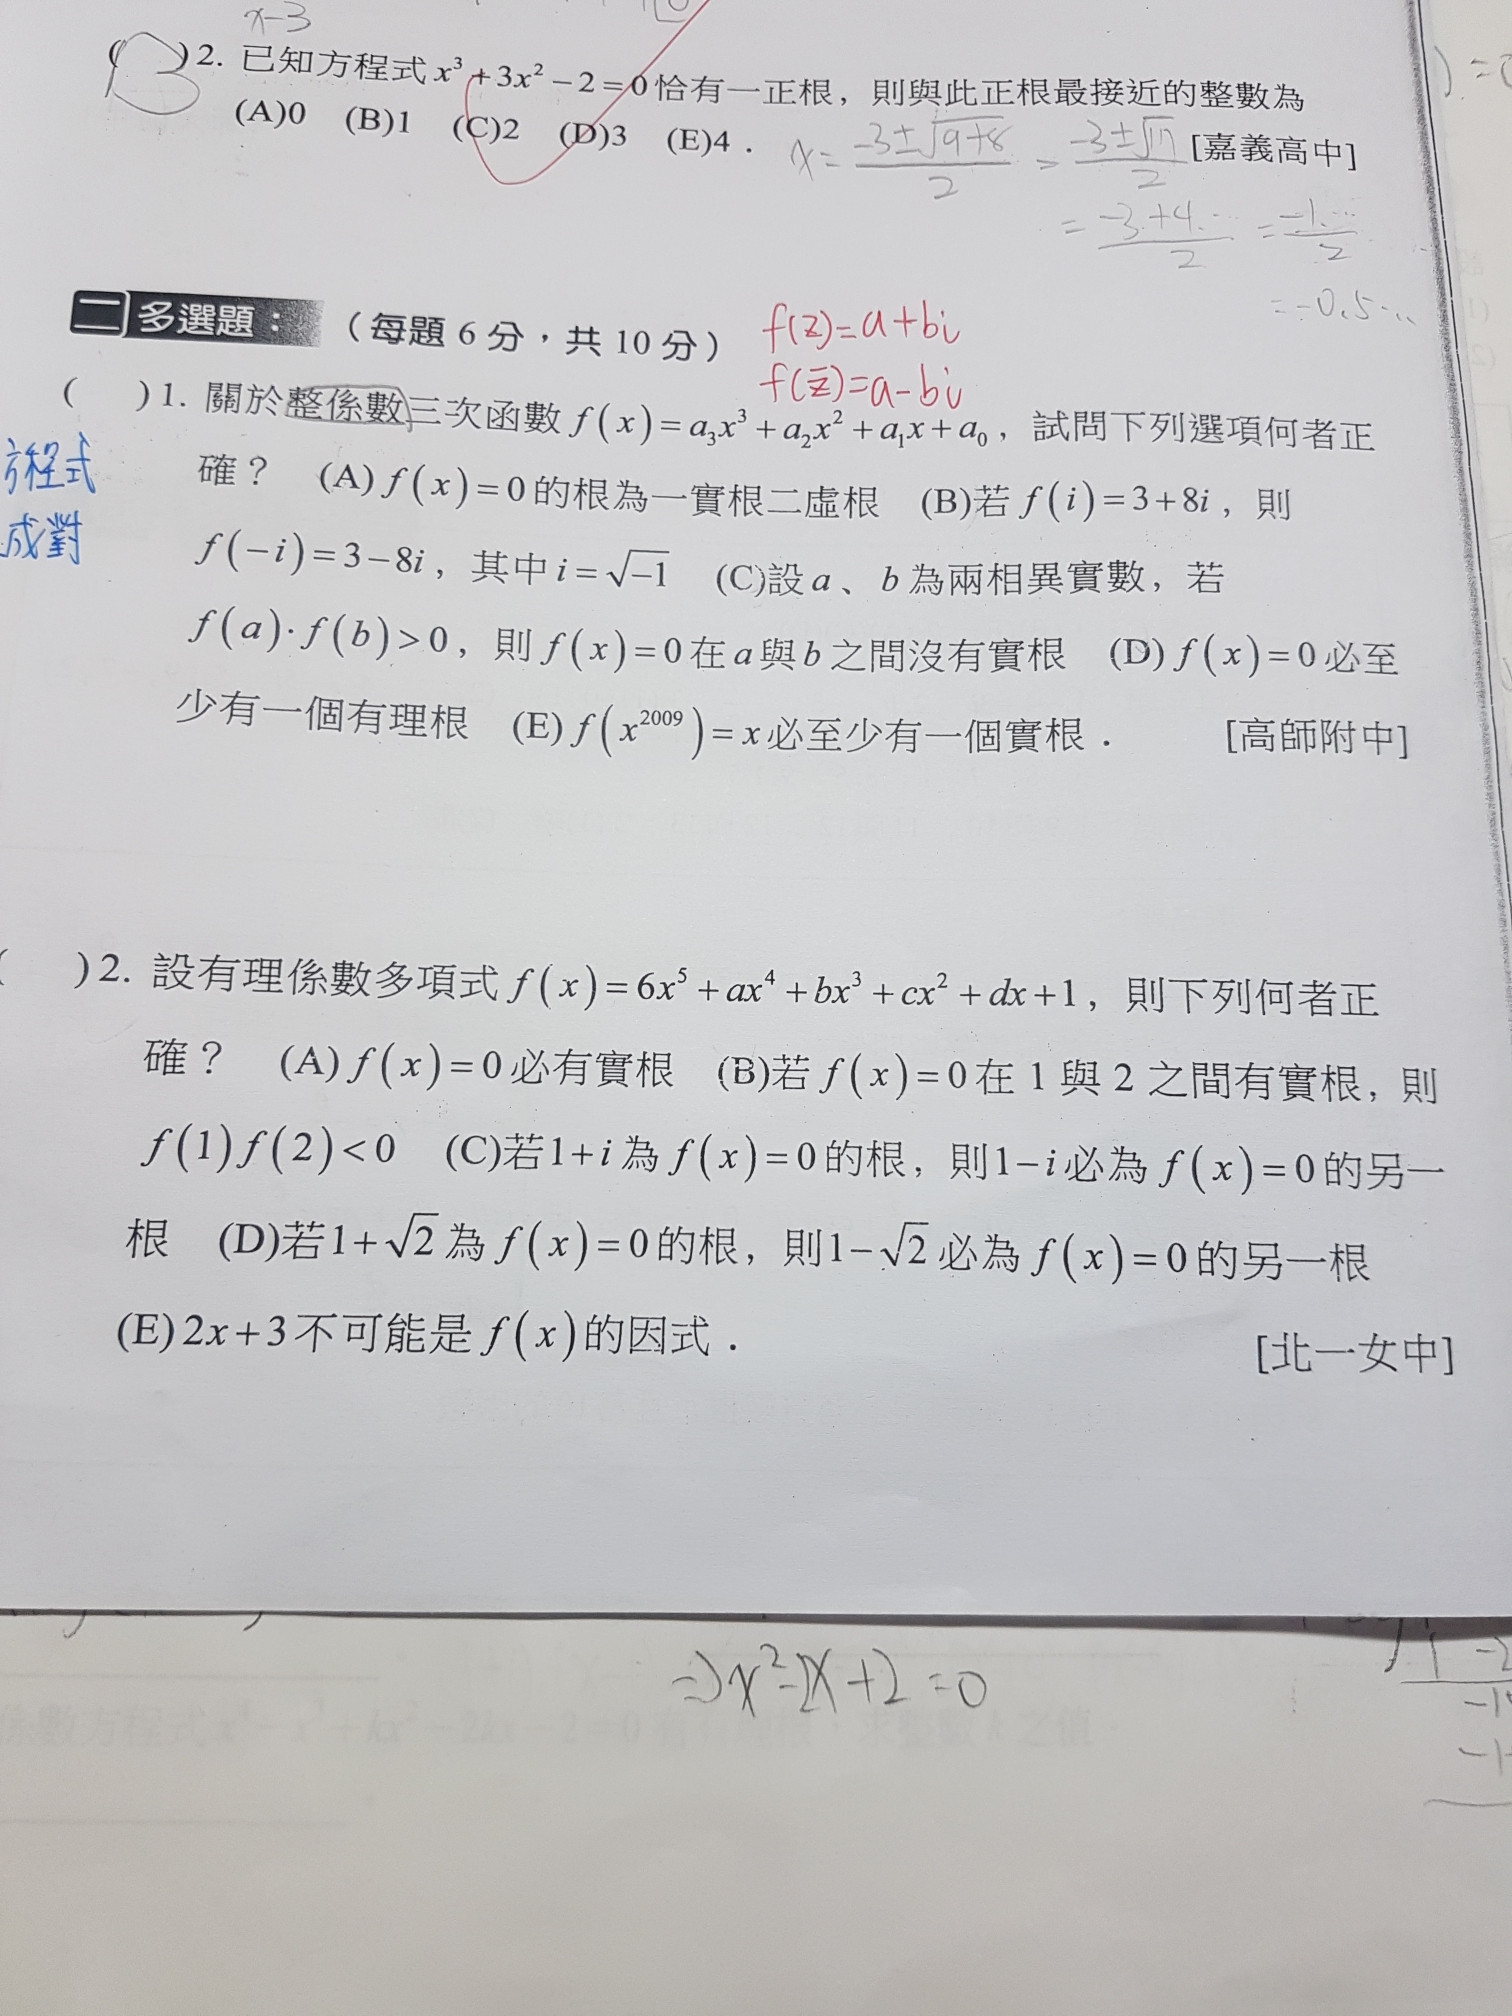 x-3
( B )2. 已知方程式 x³+3x²-2=0 恰有一正根，則與此正根最接近的整數為
(A)0 (B)1 (C)2 (D)3 (E)4． [嘉義高中]
x= (-3±√(9+8))/2 = (-3±√17)/2
= (-3+4.…)/2 = (-1.…)/2
=-0.5…
二 多選題： （每題 6 分，共 10 分）
f(z)=a+bi
f(z̄)=a-bi
( )1. 關於整係數三次函數 f(x)=a₃x³+a₂x²+a₁x+a₀，試問下列選項何者正
確？ (A) f(x)=0 的根為一實根二虛根 (B)若 f(i)=3+8i，則
方程式
f(-i)=3-8i，其中 i=√-1 (C)設 a、b 為兩相異實數，若
成對
f(a)·f(b)>0，則 f(x)=0 在 a 與 b 之間沒有實根 (D) f(x)=0 必至
少有一個有理根 (E) f(x²⁰⁰⁹)=x 必至少有一個實根． [高師附中]
( )2. 設有理係數多項式 f(x)=6x⁵+ax⁴+bx³+cx²+dx+1，則下列何者正
確？ (A) f(x)=0 必有實根 (B)若 f(x)=0 在 1 與 2 之間有實根，則
f(1)f(2)<0 (C)若 1+i 為 f(x)=0 的根，則 1-i 必為 f(x)=0 的另一
根 (D)若 1+√2 為 f(x)=0 的根，則 1-√2 必為 f(x)=0 的另一根
(E) 2x+3 不可能是 f(x) 的因式． [北一女中]
⇒x²-2x+2=0